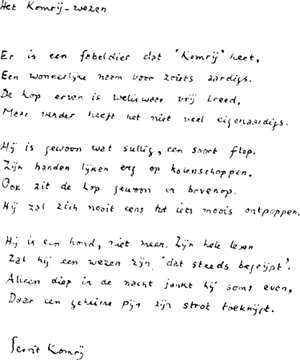 Het Komrij-wezen
Er is een fabeldier dat 'Komrij' heet,
Een wonderlijke naam voor zoiets aardigs.
De kop ervan is weliswaar vrij breed,
Maar verder heeft het niet veel eigenaardigs.
Hij is gewoon wat sullig, een soort flop.
Zijn handen lijken erg op kolenschoppen.
Ook zit de kop gewoon er bovenop.
Hij zal zich nooit eens tot iets moois ontpoppen.
Hij is een hond, niet meer. Zijn hele leven
Zal hij een wezen zijn 'dat steeds begrijpt'.
Alleen diep in de nacht jankt hij soms even,
Daar een geheime pijn zijn strot toeknijpt.
Gerrit Komrij